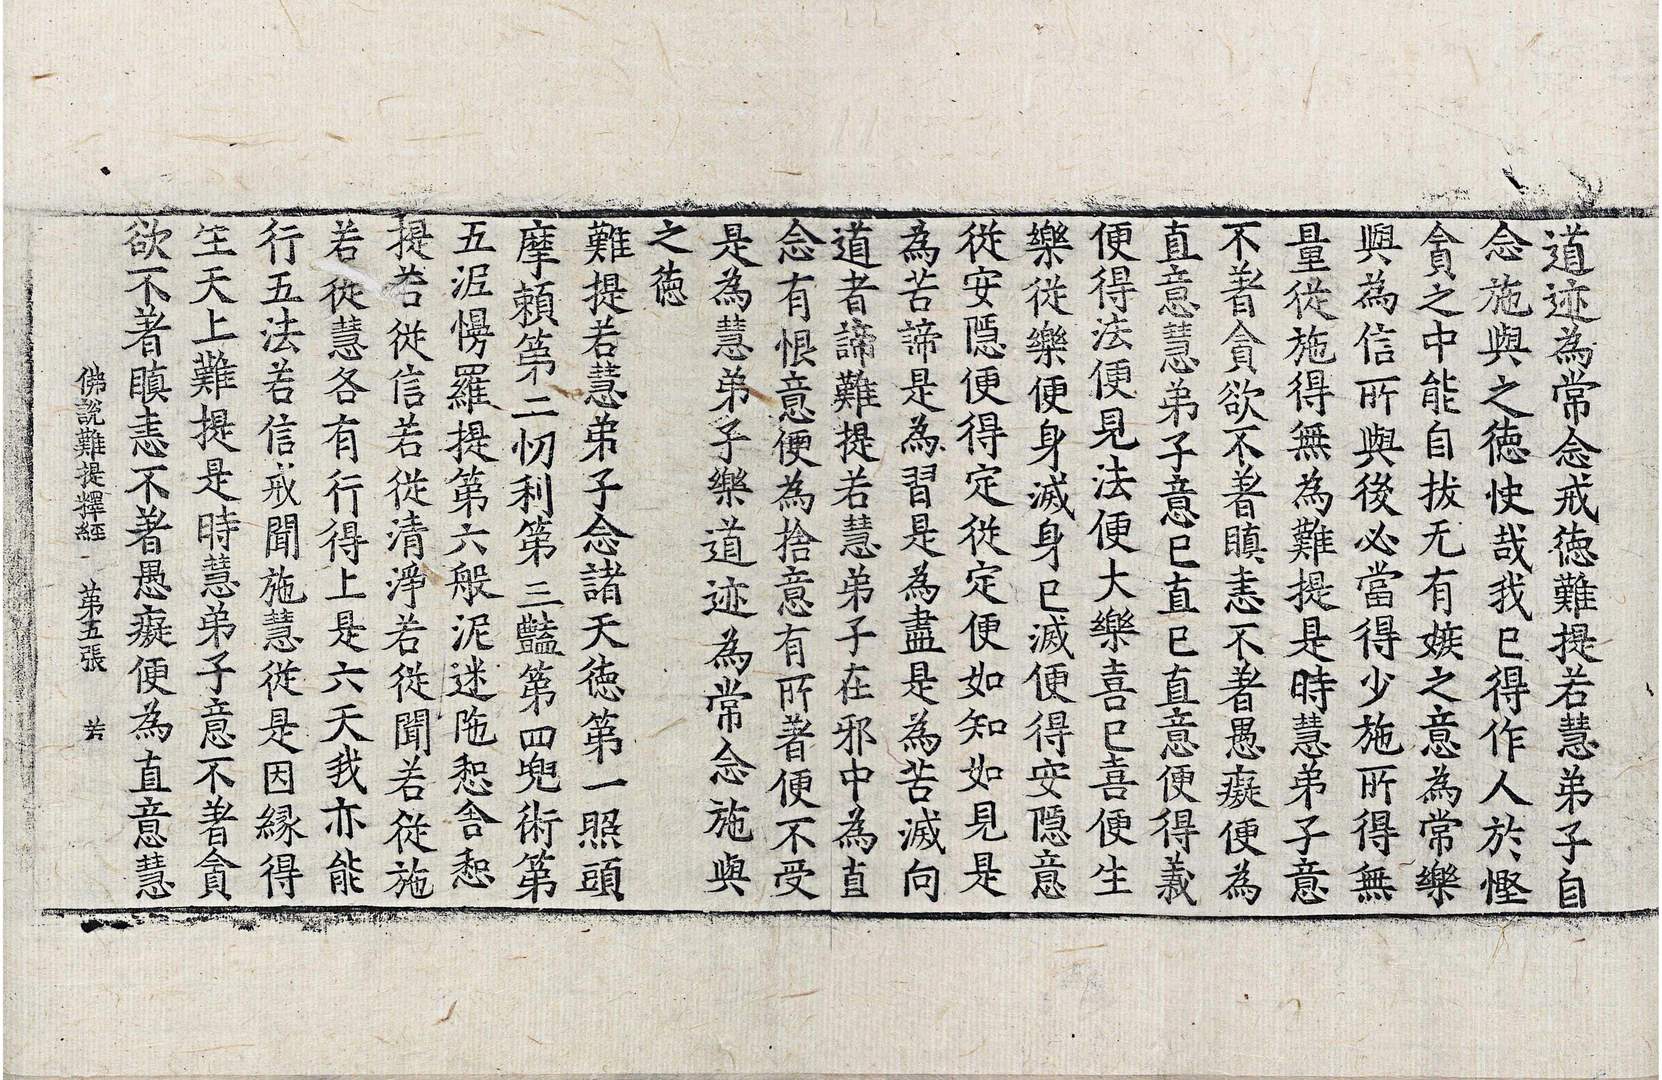 道迹為常念戒徳難提若慧弟子自
念施與之徳快哉我已得作人於慳
貪之中能自拔无有嫉之意為常樂
與為信所與後必當得少施所得無
量從施得無為難提是時慧弟子意
不著貪欲不著瞋恚不著愚癡便為
直意慧弟子意已直已直意便得義
便得法便見法便大樂喜已喜便生
樂從樂便身滅身已滅便得安隠意
從安隠便得定從定便如知如見是
為苦諦是為習是為盡是為苦滅向
道者諦難提若慧弟子在邪中為直
念有恨意便為捨意有所著便不受
是為慧弟子樂道迹為常念施與
之徳
難提若慧弟子念諸天徳第一照頭
摩賴第二忉利第三豔第四兜術第
五泥慢羅提第六般泥迷陁惒舍惒
提若從信若從清淨若從聞若從施
若從慧各有行得上是六天我亦能
行五法若信戒聞施慧從是因縁得
生天上難提是時慧弟子意不著貪
欲不著瞋恚不著愚癡便為直意慧
佛說難提釋經 第五張 若